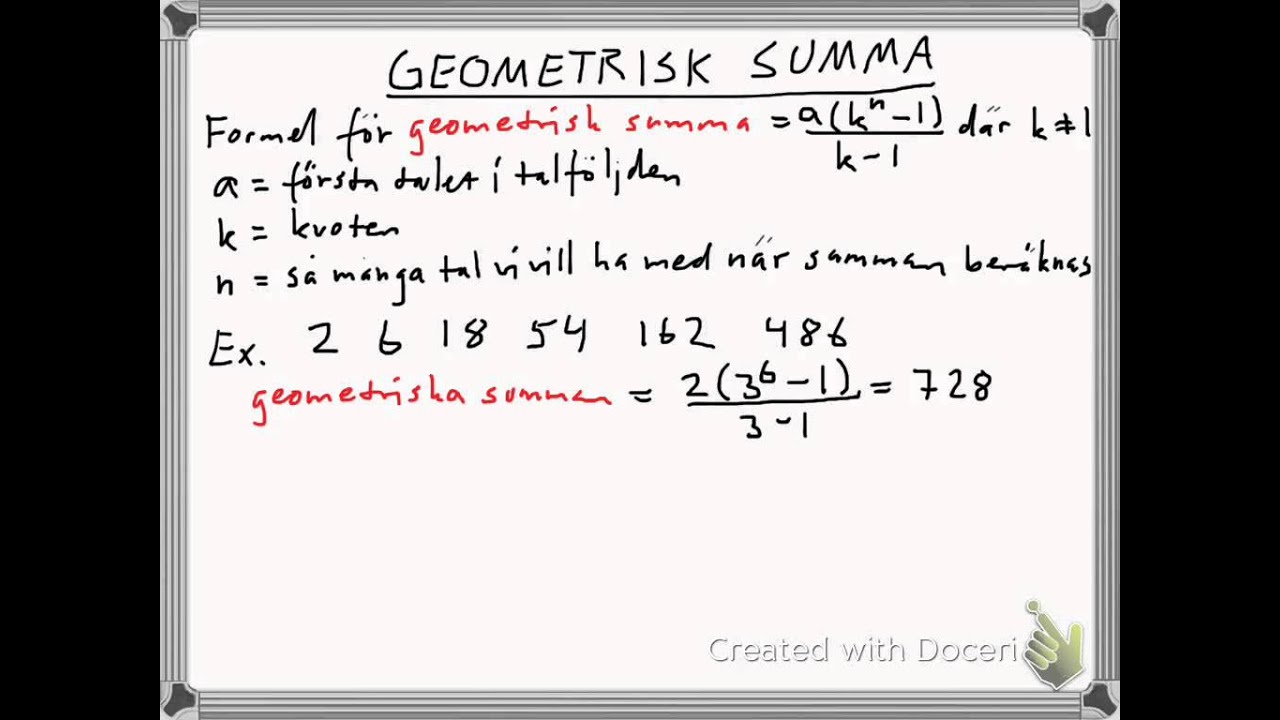 GEOMETRISK SUMMA
Formel för geometrisk summa = a(kⁿ-1)/(k-1) där k≠1
a = första talet i talföljden
k = kvoten
n = så många tal vi vill ha med när summan beräknas
Ex. 2 6 18 54 162 486
geometriska summan = 2(3⁶-1)/(3-1) = 728
Created with Doceri